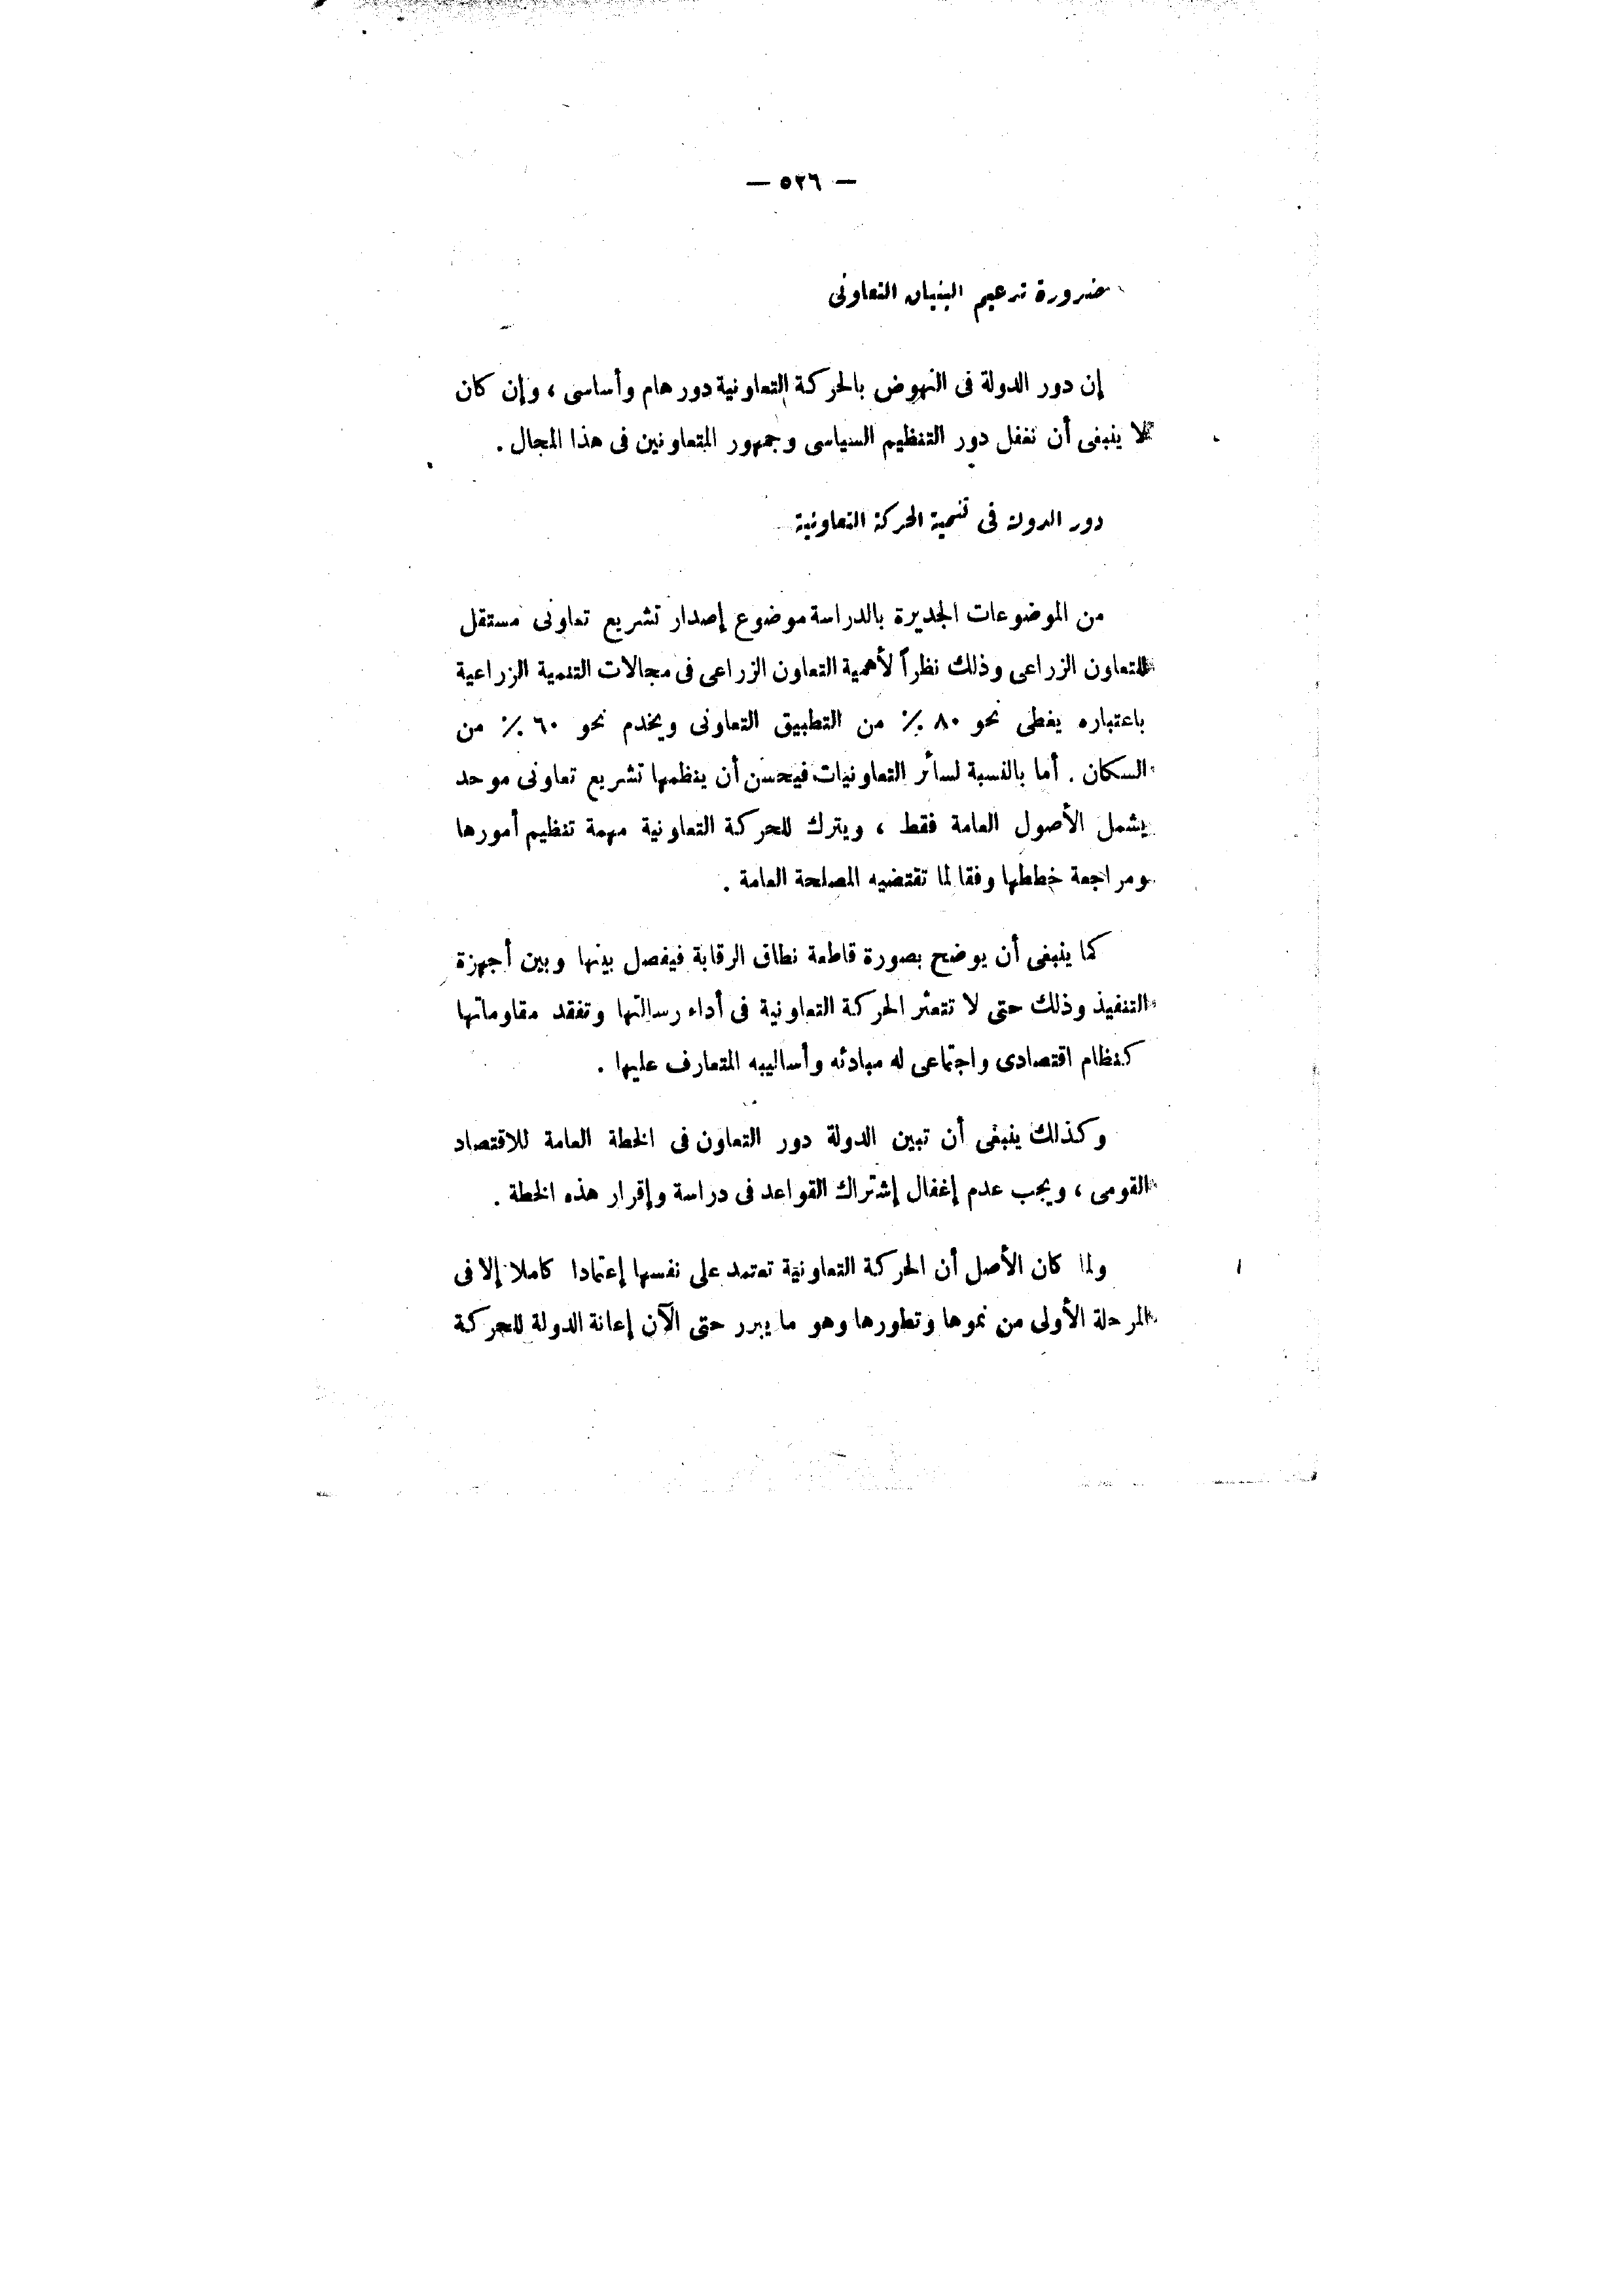 — ٥٢٦ —
ضرورة تدعيم البنيان التعاونى
إن دور الدولة فى النهوض بالحركة التعاونية دور هام وأساسى ، وإن كان
لا ينبغى أن نغفل دور التنظيم السياسى وجمهور المتعاونين فى هذا المجال .
دور الدولة فى تنمية الحركة التعاونية
من الموضوعات الجديرة بالدراسة موضوع إصدار تشريع تعاونى مستقل
للتعاون الزراعى وذلك نظراً لأهمية التعاون الزراعى فى مجالات التنمية الزراعية
باعتباره يغطى نحو ٨٠ ٪ من التطبيق التعاونى ويخدم نحو ٦٠ ٪ من
السكان . أما بالنسبة لسائر التعاونيات فيحسن أن ينظمها تشريع تعاونى موحد
يشمل الأصول العامة فقط ، ويترك للحركة التعاونية مهمة تنظيم أمورها
ومراجعة خططها وفقا لما تقتضيه المصلحة العامة .
كما ينبغى أن يوضح بصورة قاطعة نطاق الرقابة فيفصل بينها وبين أجهزة
التنفيذ وذلك حتى لا تتعثر الحركة التعاونية فى أداء رسالتها وتفقد مقاوماتها
كنظام اقتصادى واجتماعى له مبادئه وأساليبه المتعارف عليها .
وكذلك ينبغى أن تبين الدولة دور التعاون فى الخطة العامة للاقتصاد
القومى ، ويجب عدم إغفال إشتراك القواعد فى دراسة وإقرار هذه الخطة .
ولما كان الأصل أن الحركة التعاونية تعتمد على نفسها إعتمادا كاملا إلا فى
المرحلة الأولى من نموها وتطورها وهو ما يبرر حتى الآن إعانة الدولة للحركة